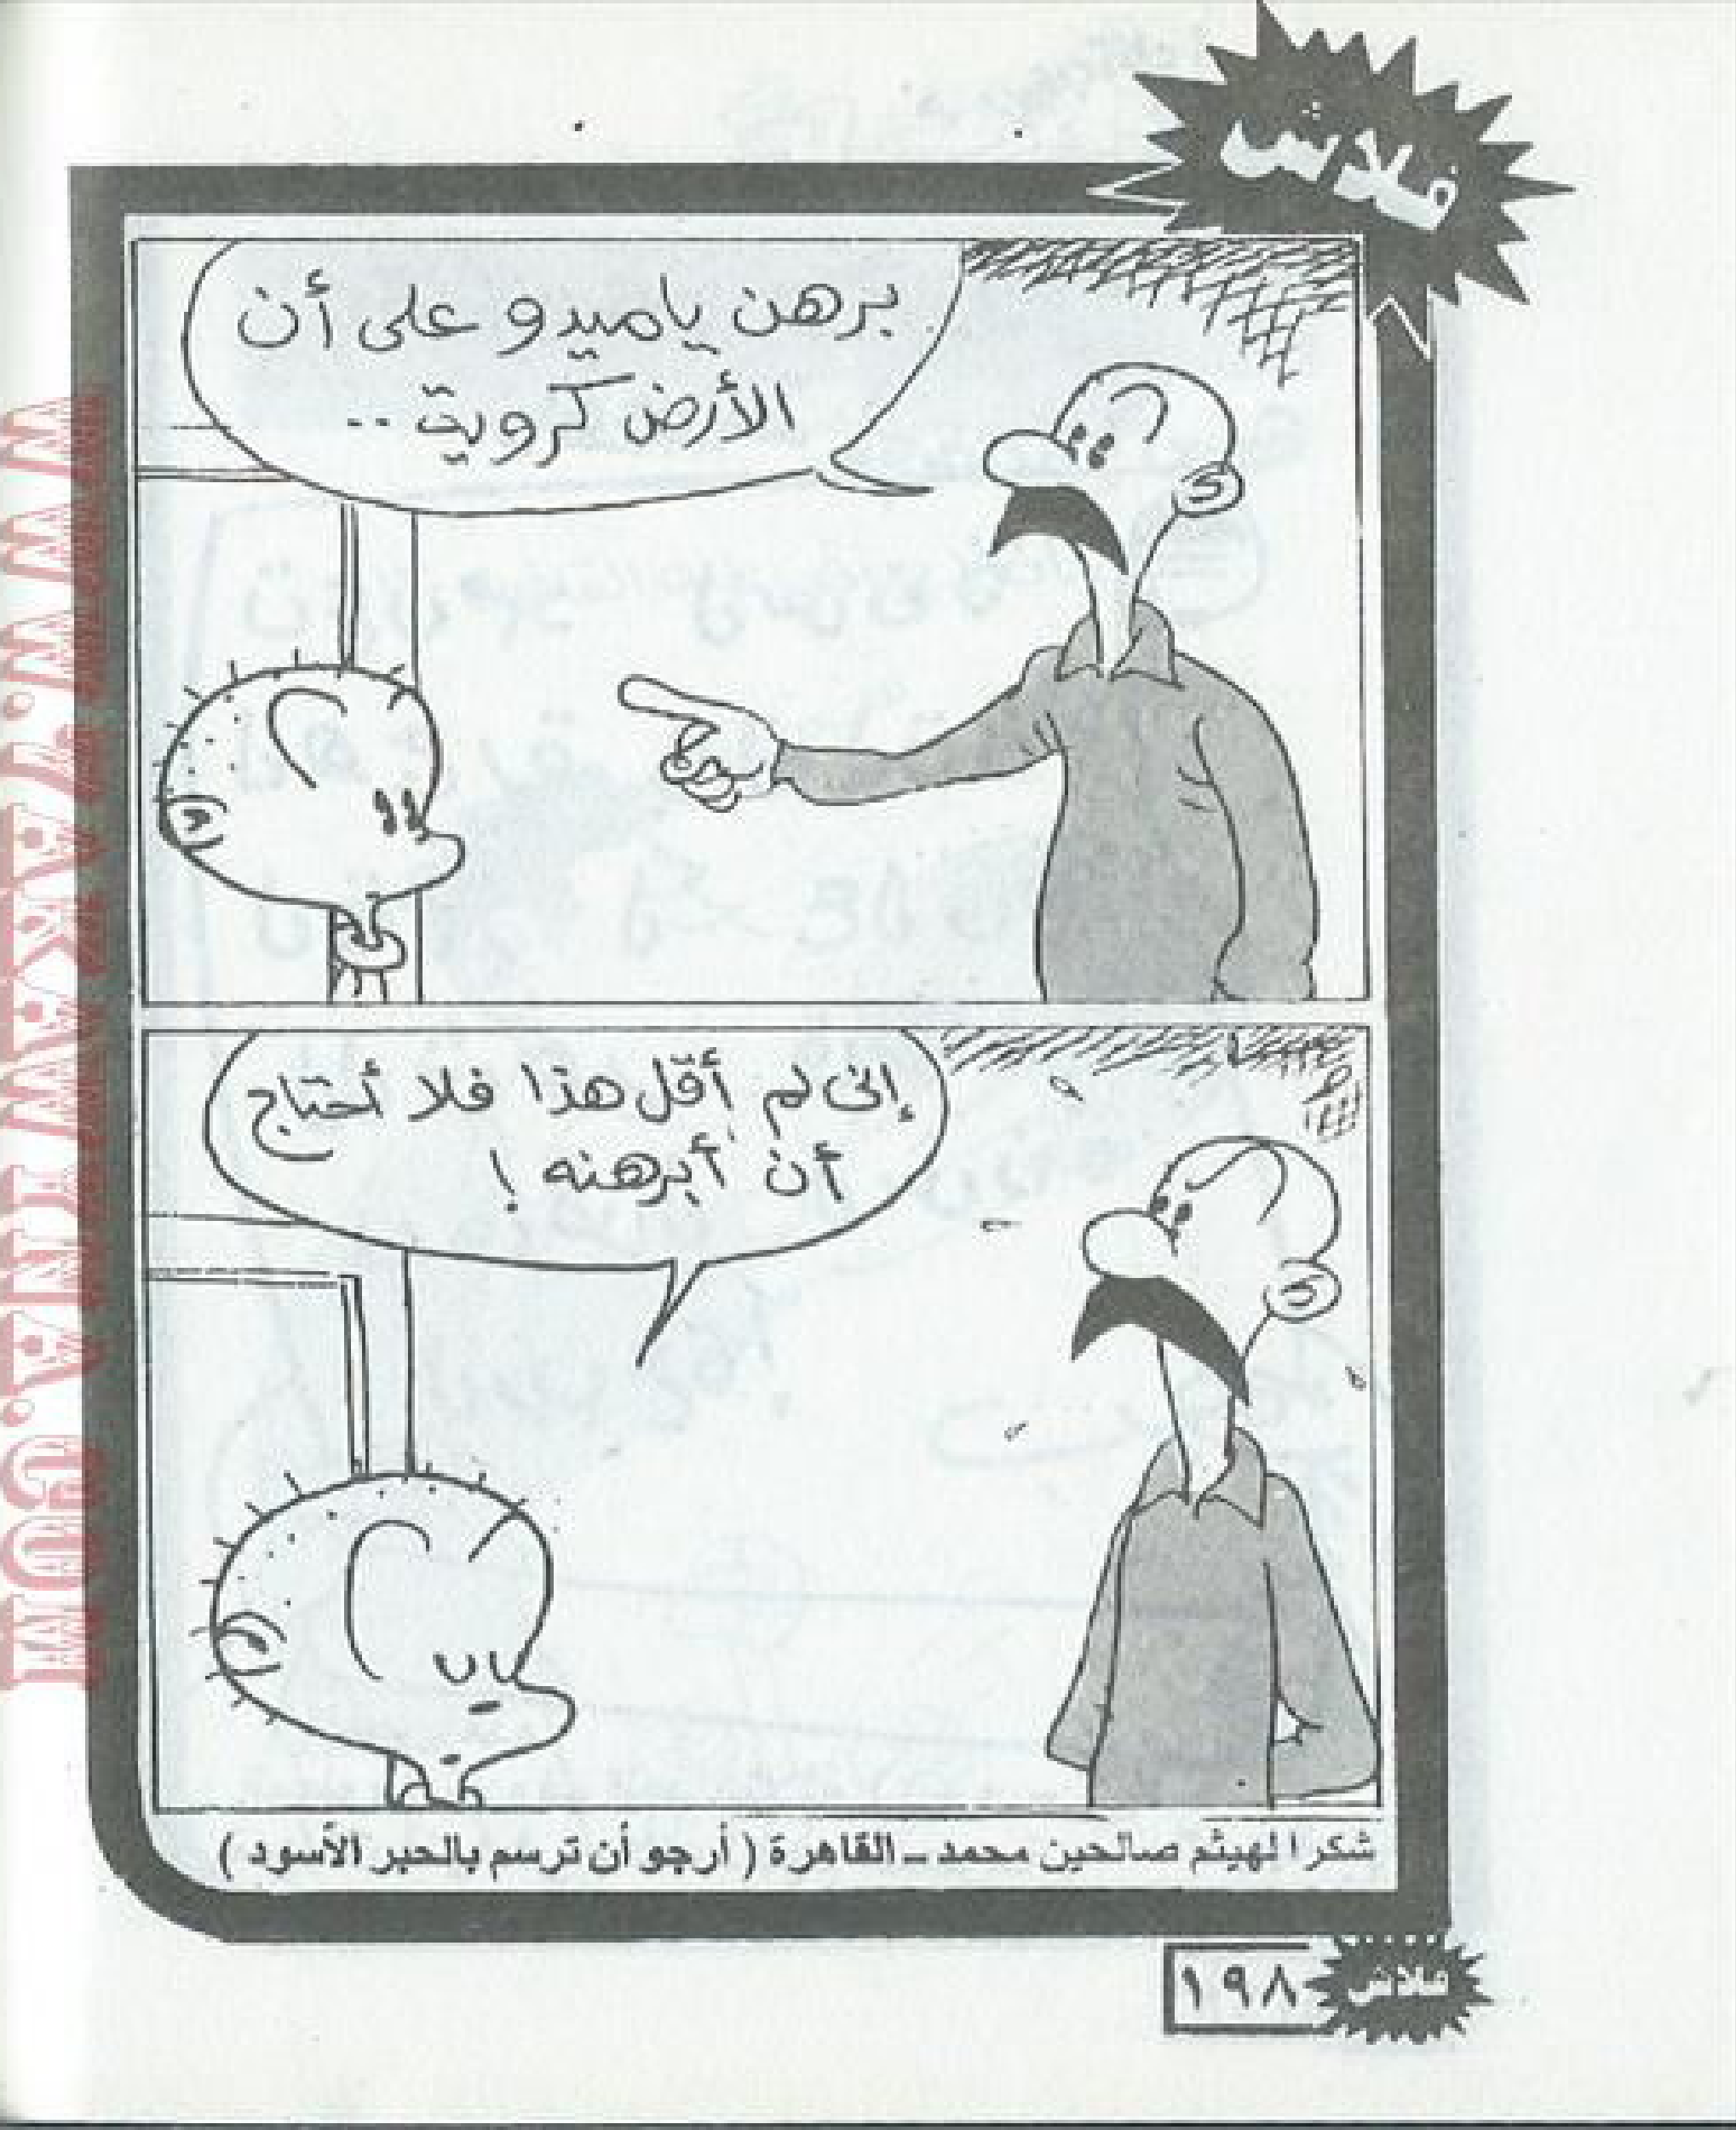 فلاش
برهن ياميدو على أن
الأرض كروية ..
إنى لم أقل هذا فلا أحتاج
أن أبرهنه !
شكرا لهيثم صالحين محمد - القاهرة ( أرجو أن ترسم بالحبر الأسود )
فلاش ١٩٨